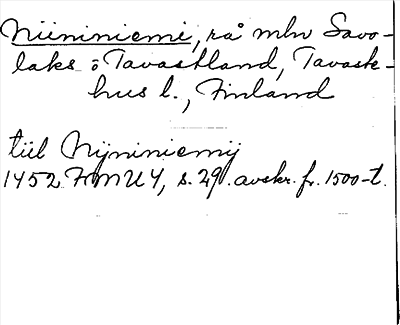 Niininiemi, rå mln Savo-
laks o Tavastland, Tavaste-
hus l., Finland
till Nijniniemij
1452 FMU 4, s. 29. avskr. fr. 1500-t.